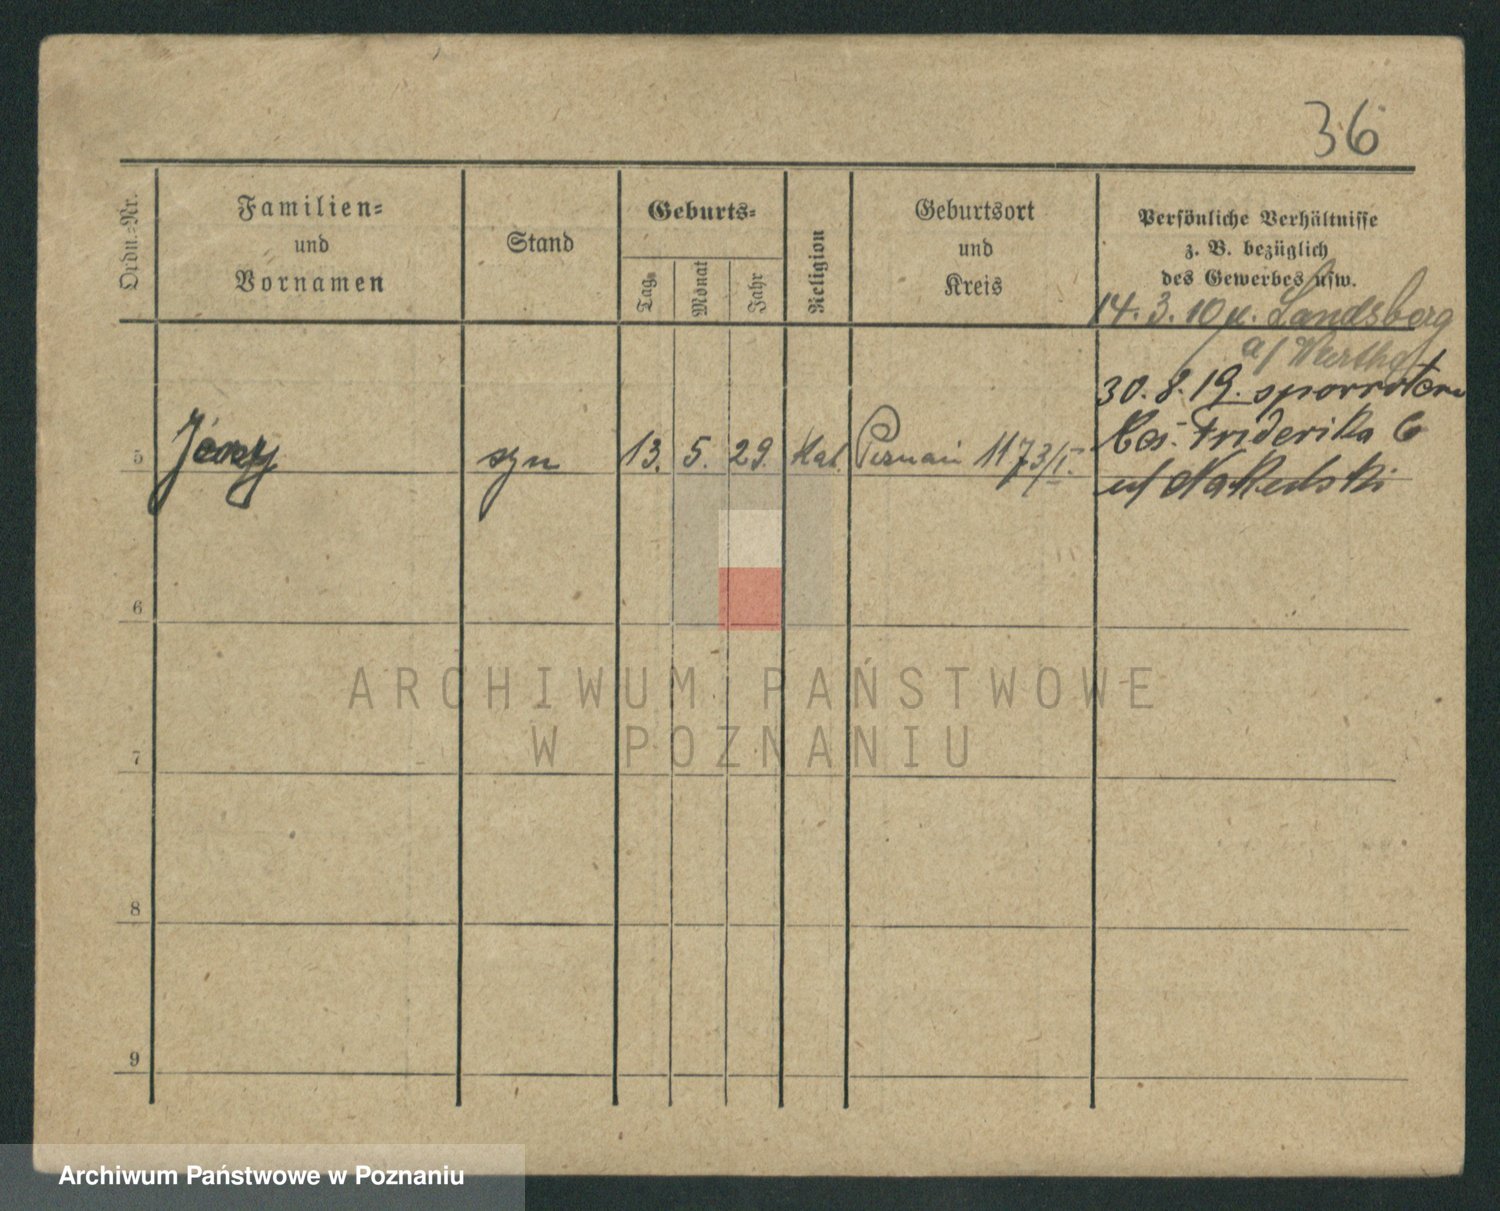 36
Ordn.-Nr.
Familien-
und
Vornamen
Stand
Geburts-
Tag
Monat
Jahr
Religion
Geburtsort
und
Kreis
Persönliche Verhältnisse
z. B. bezüglich
des Gewerbes usw.
14. 3. 10 Landsberg
a/ Warthe
30. 8. 19.
Friderika
5 Jerzy syn 13. 5. 29. Kat. Poznań 1173/I.
6
7
8
9
ARCHIWUM PAŃSTWOWE
W POZNANIU
Archiwum Państwowe w Poznaniu